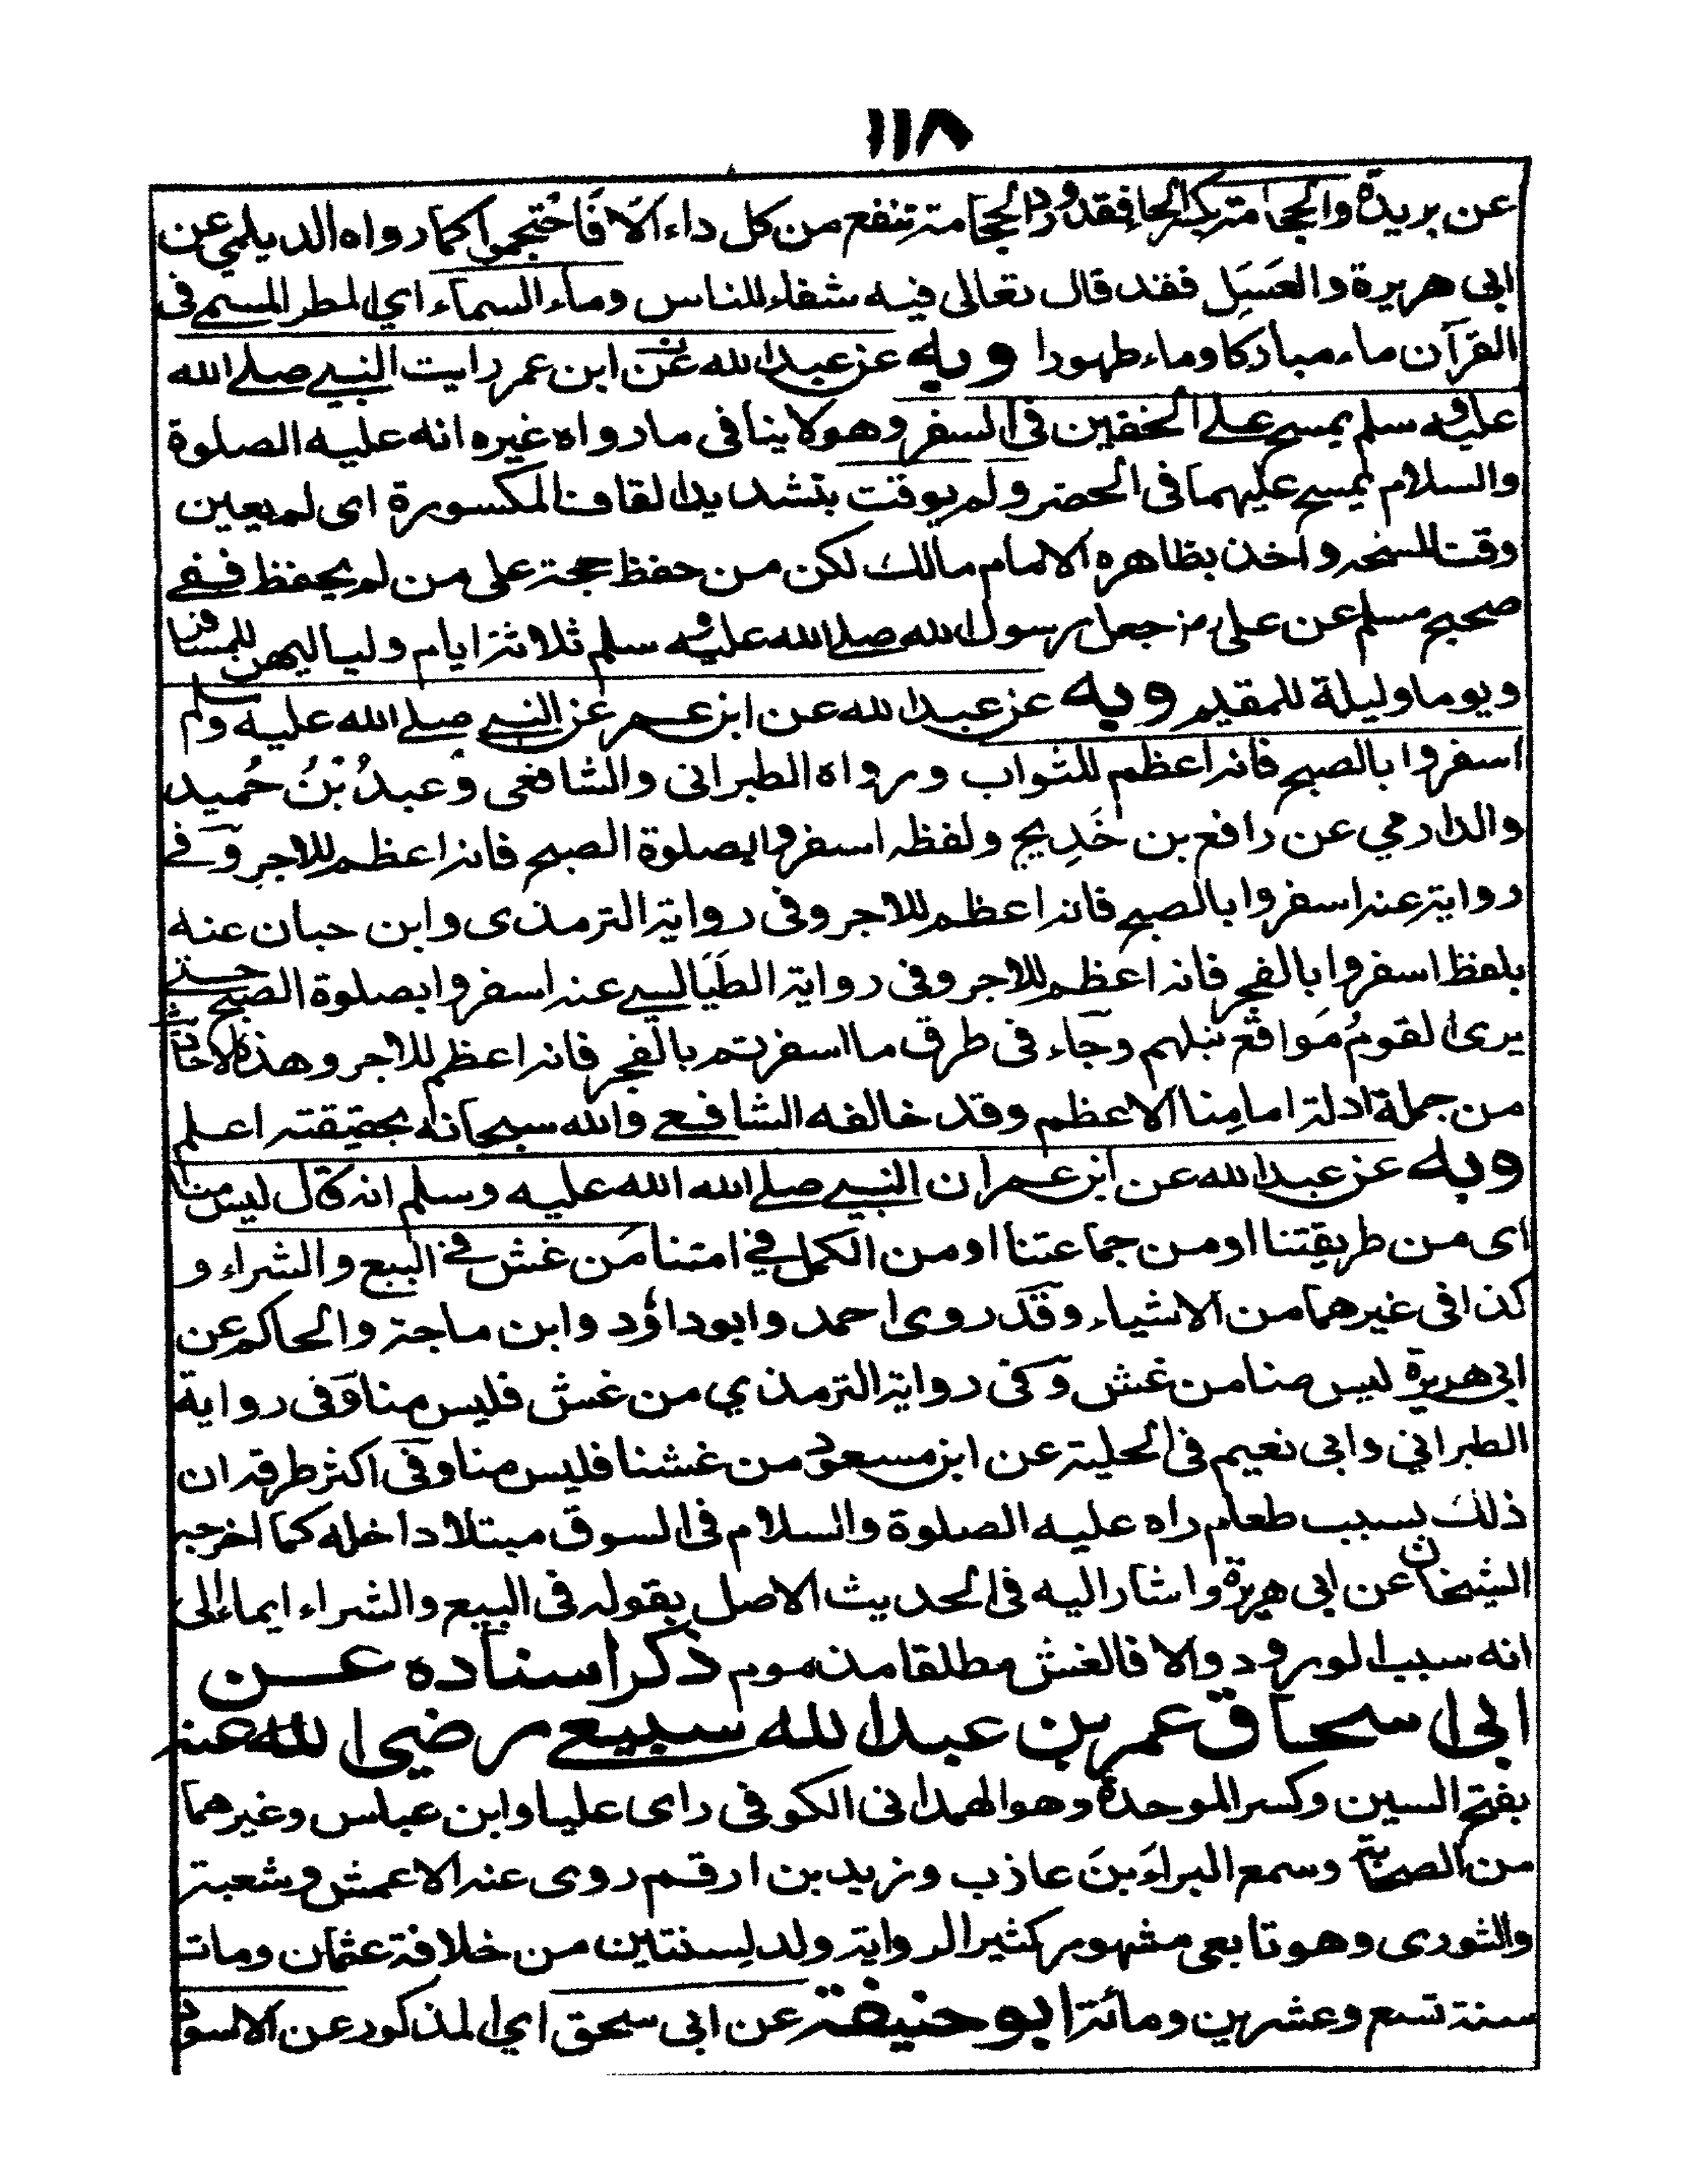 ١١٨
عن بريدة والحجامة بكسر الحا فقد ورد الحجامة تنفع من كل داء الا فاحتجموا كما رواه الديلمي عن
ابى هريرة والعسل فقد قال تعالى فيه شفاء للناس وماء السماء اي المطر المسمى فى
القرآن ماء مباركا وماء طهورا وبه عن عبد الله عن ابن عمر رايت النبي صلى الله
عليه وسلم يمسح على الخفين فى السفر وهو لا ينافى ما رواه غيره انه عليه الصلوة
والسلام يمسح عليهما فى الحضر ولم يوقت بتشديد القاف المكسورة اى لم يعين
وقت المسح واخذ بظاهره الامام مالك لكن من حفظ حجة على من لم يحفظ ففى
صحيح مسلم عن على رض جعل رسول الله صلى الله عليه وسلم ثلاثة ايام ولياليهن للمسافر
ويوما وليلة للمقيم وبه عن عبد الله عن ابن عمر عن النبي صلى الله عليه وسلم
اسفروا بالصبح فانه اعظم للثواب ورواه الطبرانى والشافعى وعبدُ بْنُ حُميد
والدارمي عن رافع بن خَدِيج ولفظه اسفروا بصلوة الصبح فانه اعظم للاجر وفى
رواية عنه اسفروا بالصبح فانه اعظم للاجر وفى رواية الترمذى وابن حبان عنه
بلفظ اسفروا بالفجر فانه اعظم للاجر وفى رواية الطَيَالسي عنه اسفروا بصلوة الصبح حتى
يرى القومُ مَواقع نبلهم وجاء فى طرق ما اسفرتم بالفجر فانه اعظم للاجر وهذه الاحاديث
من جملة ادلة امامنا الاعظم وقد خالفه الشافعى والله سبحانه بحقيقته اعلم
وبه عن عبد الله عن ابن عمر ان النبي صلى الله الله عليه وسلم انه قال ليس منا
اى من طريقتنا او من جماعتنا او من الكمل في امتنا مَن غش في البيع والشراء و
كذا فى غيرهما من الاشياء وقد روى احمد وابوداؤد وابن ماجة والحاكم عن
ابى هريرة ليس منا من غش وفى رواية الترمذي من غش فليس منا وفى رواية
الطبراني وابى نعيم فى الحلية عن ابن مسعود من غشنا فليس منا وفى اكثر طرقه ان
ذلك بسبب طعام راه عليه الصلوة والسلام فى السوق مبتلا داخله كما اخرجه
الشيخان عن ابى هريرة واشار اليه فى الحديث الاصل بقوله فى البيع والشراء ايماء الى
انه سبب الورود والا فالغش مطلقا مذموم ذكر اسناده عن
ابى اسحاق عمر بن عبد الله سبيعى رضى الله عنه
بفتح السين وكسر الموحدة وهو الهمدانى الكوفى راى عليا وابن عباس وغيرهما
من الصحابة وسمع البراءَ بنَ عاذب وزيد بن ارقم روى عنه الاعمش وشعبة
والثورى وهو تابعى مشهور كثير الرواية ولد لسنتين من خلافة عثمان ومات
سنة تسع وعشرين ومائة ابو حنيفة عن ابى سحق اي المذكور عن الاسود